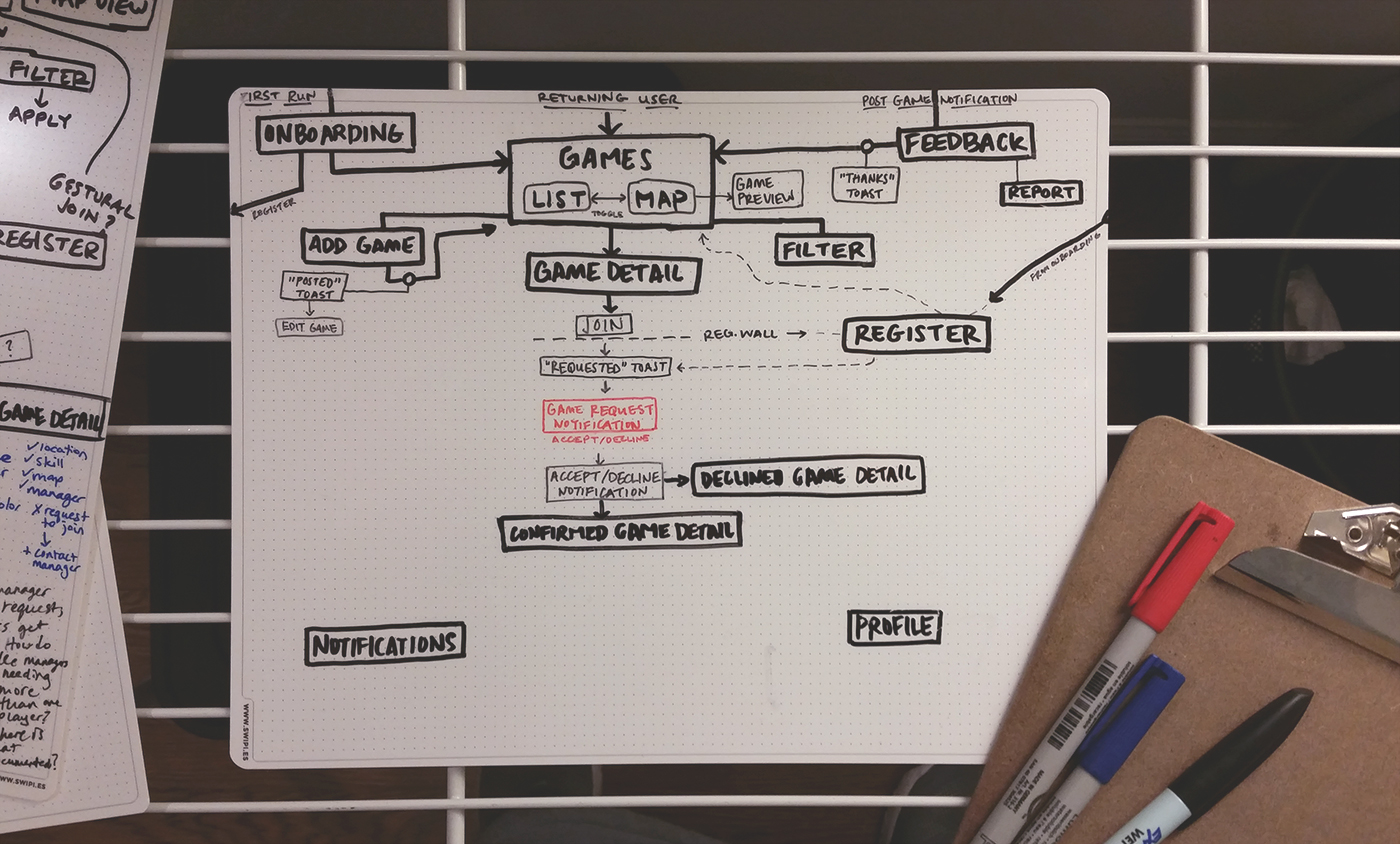 MAP VIEW
FILTER
APPLY
GESTURAL
JOIN?
REGISTER
?
GAME DETAIL
✓location
✓skill
✓map
✓manager
X request
to join
+ contact
manager
manager
request,
get
How do
manager
needing
more
than one
player?
WWW.SWIPI.ES
FIRST RUN
ONBOARDING
REGISTER
RETURNING USER
GAMES
LIST
MAP
TOGGLE
GAME
PREVIEW
POST GAME NOTIFICATION
FEEDBACK
"THANKS"
TOAST
REPORT
ADD GAME
"POSTED"
TOAST
EDIT GAME
FILTER
FROM ONBOARDING
GAME DETAIL
JOIN
REG. WALL
REGISTER
"REQUESTED" TOAST
GAME REQUEST
NOTIFICATION
ACCEPT/DECLINE
ACCEPT/DECLINE
NOTIFICATION
DECLINED GAME DETAIL
CONFIRMED GAME DETAIL
NOTIFICATIONS
PROFILE
WWW.SWIPI.ES